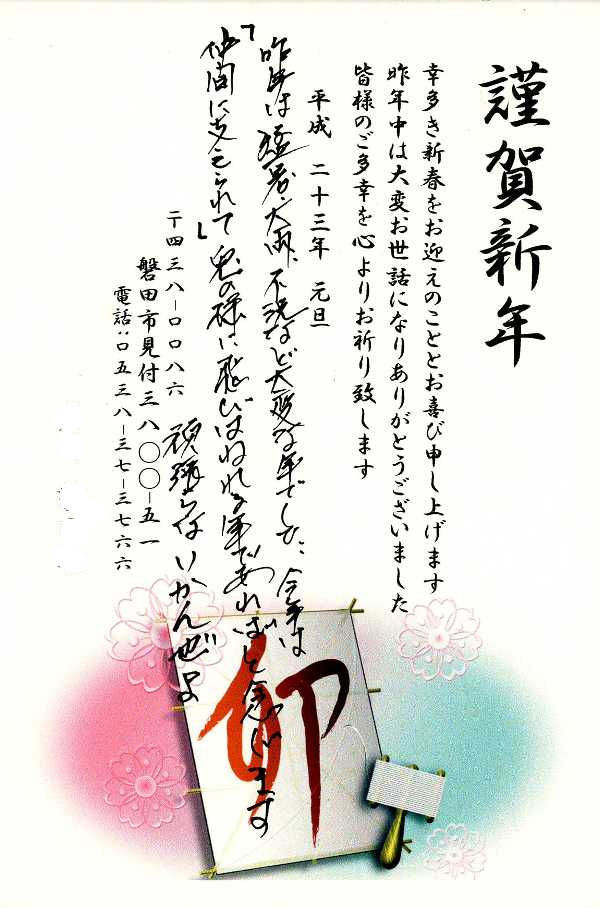 謹賀新年
幸多き新春をお迎えのこととお喜び申し上げます
昨年中は大変お世話になりありがとうございました
皆様のご多幸を心よりお祈り致します
平成 二十三年 元旦
昨年は猛暑、大雨、不況など大変な年でした、今年は
「仲間に支えられて」兎の様に飛びはねれる年であればと念じます
頑張らないかんぜよ
〒四三八-〇〇八六
磐田市見付三八〇〇-五一
電話:〇五三八-三七-三七六六
卯